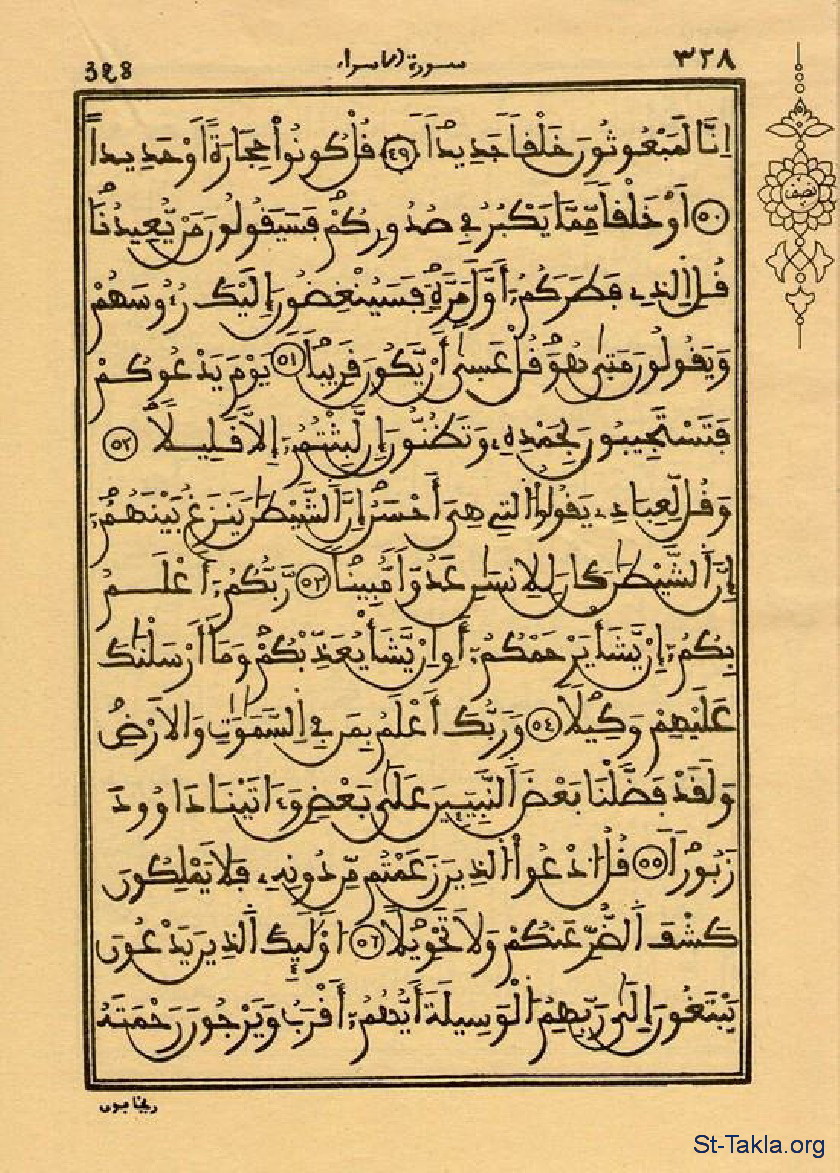 328 سورة الإسراء ٣٢٨
اِنَّا لَمَبْعُوثُونَ خَلْقاً جَدِيداً ٤٩ قُلْ كُونُواْ حِجَارَةً اَوْ حَدِيداً
٥٠ اَوْ خَلْقاً مِّمَّا يَكْبُرُ فِے صُدُورِكُمْ فَسَيَقُولُونَ مَنْ يُّعِيدُنَا
قُلِ اِلذِے فَطَرَكُمُۥٓ أَوَّلَ مَرَّةٍ فَسَيُنْغِضُونَ إِلَيْكَ رُءُوسَهُمْ
وَيَقُولُونَ مَتَىٰ هُوَ قُلْ عَسَىٰ أَنْ يَّكُونَ قَرِيباً ٥١ يَوْمَ يَدْعُوكُمْ
فَتَسْتَجِيبُونَ بِحَمْدِهِۦ وَتَظُنُّونَ إِن لَّبِثْتُمُۥٓ إِلاَّ قَلِيلاً ٥٢
وَقُل لِّعِبَادِے يَقُولُواْ اُلتِے هِيَ أَحْسَنُ إِنَّ اَلشَّيْطَٰنَ يَنزَغُ بَيْنَهُمُۥٓ
إِنَّ اَلشَّيْطَٰنَ كَانَ لِلِانسَٰنِ عَدُوّاً مُّبِيناً ٥٣ رَّبُّكُمُۥٓ أَعْلَمُ
بِكُمُۥٓ إِنْ يَّشَأْ يَرْحَمْكُمُۥٓ أَوِ اِنْ يَّشَأْ يُعَذِّبْكُمْ وَمَا أَرْسَلْنَٰكَ
عَلَيْهِمْ وَكِيلاً ٥٤ وَرَبُّكَ أَعْلَمُ بِمَن فِے اِلسَّمَٰوَٰتِ وَالاَرْضِ
وَلَقَدْ فَضَّلْنَا بَعْضَ اَلنَّبِيٓـِٕينَ عَلَىٰ بَعْضٍ وَءَاتَيْنَا دَاوُودَ
زَبُوراً ٥٥ قُلُ اُدْعُواْ اُلذِينَ زَعَمْتُم مِّن دُونِهِۦ فَلَا يَمْلِكُونَ
كَشْفَ اَلضُّرِّ عَنكُمْ وَلَا تَحْوِيلاً ٥٦ اُوْلَٰٓئِكَ اَلذِينَ يَدْعُونَ
يَبْتَغُونَ إِلَىٰ رَبِّهِمُ اُلْوَسِيلَةَ أَيُّهُمُۥٓ أَقْرَبُ وَيَرْجُونَ رَحْمَتَهُ
نصف
St-Takla.org